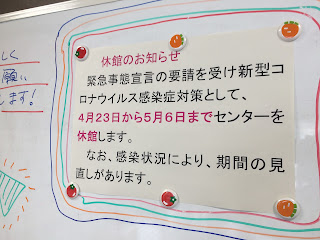 休館のお知らせ
緊急事態宣言の要請を受け新型コ
ロナウイルス感染症対策として、
4月23日から5月6日までセンターを
休館します。
なお、感染状況により、期間の見
直しがあります。
しく
願い
します!